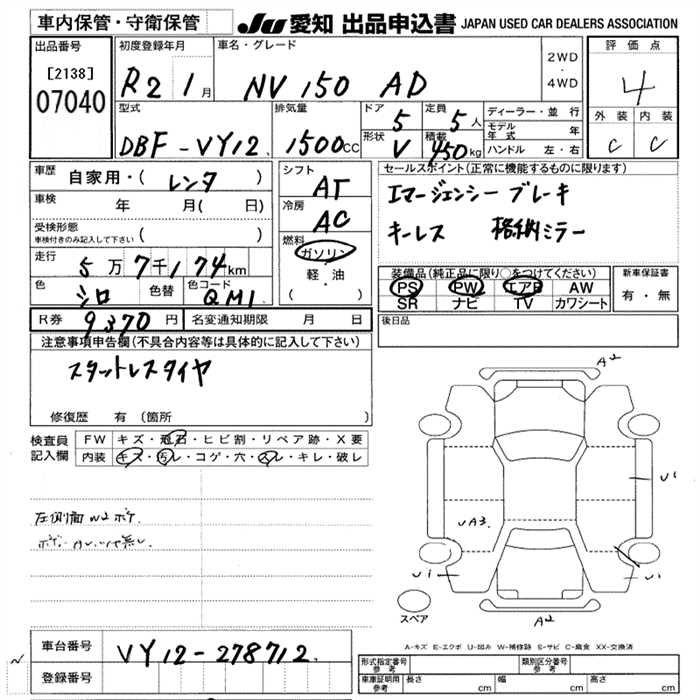 車内保管・守衛保管
JU 愛知 出品申込書 JAPAN USED CAR DEALERS ASSOCIATION
出品番号
[2138]
07040
初度登録年月
R2 1月
車名・グレード
NV150 AD
2WD
・
4WD
評価点
4
外装 内装
C C
型式
DBF-VY12
排気量
1500cc
ドア 5
定員 5人
形状 V
積載 450kg
ディーラー・並行
モデル年式 年
ハンドル 左・右
車歴 自家用・( レンタ )
車検 年 月( 日)
受検形態
車検付きのみ記入して下さい ( )
走行 5万7千174km
色 シロ
色替
色コード QM1
シフト AT
冷房 AC
燃料
ガソリン
軽・油
( )
R券 9370円
名変通知期限 月 日
セールスポイント(正常に機能するものに限ります)
エマージェンシーブレーキ
キーレス 格納ミラー
装備品(純正品に限り○をつけてください)
PS PW エアB AW
SR ナビ TV カワシート
新車保証書
有・無
後日品
注意事項申告欄(不具合内容等は具体的に記入して下さい)
スタットレスタイヤ
修復歴 有(箇所 )
検査員記入欄
FW キズ・飛石・ヒビ割・リペア跡・X要
内装 キズ・汚レ・コゲ・穴・スレ・キレ・破レ
左側面W2ボケ.
A2
U1
UA3.
U1
U1
A2
スペア
A-キズ E-エクボ U-凹み W-補修跡 S-サビ C-腐食 XX-交換済
車台番号 VY12-278712
登録番号
形式指定番号 参考
類別区分番号 参考
車庫証明用 参考 長さ cm 幅 cm 高さ cm